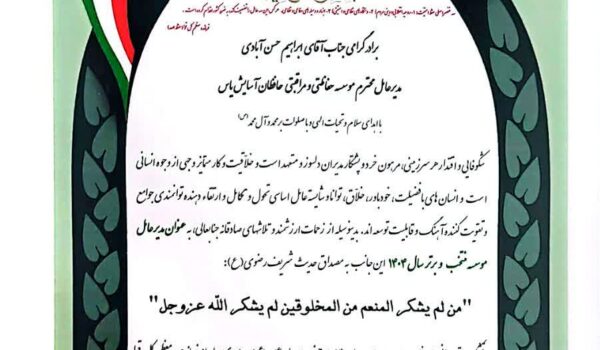 برادر گرامی جناب آقای ابراهیم حسن آبادی
مدیرعامل محترم موسسه حفاظتی و مراقبتی حافظان آسایش یاس
با اهدای سلام و تحیات الهی و با صلوات بر محمد و آل محمد (ص)
شکوفایی و اقتدار هر سرزمینی، مرهون خرد و پشتکار مدیران دلسوز و متعهد است و خلاقیت و کار متمایز وجهی از وجوه انسانی
است و انسان های با فضیلت، خودباور، خلاق، توانا و شایسته عامل اساسی تحول و تکامل و ارتقاء دهنده توانمندی جوامع
و تقویت کننده آهنگ و قابلیت توسعه اند. بدینوسیله از زحمات ارزشمند و تلاشهای صادقانه جنابعالی، به عنوان مدیرعامل
موسسه منتخب و برتر سال ۱۴۰۴ این جانب به مصداق حدیث شریف رضوی (ع):
"من لم یشکر المنعم من المخلوقین لم یشکر الله عزوجل"